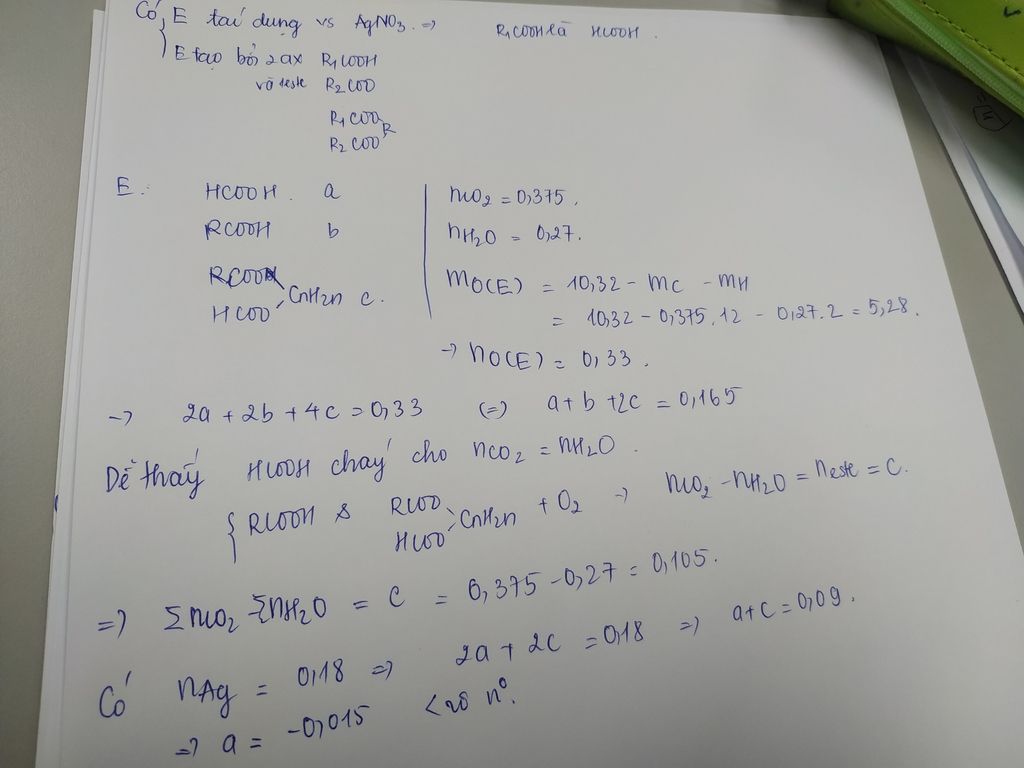 Có, E tác dụng vs AgNO3 ⇒ R1COOH là HCOOH.
E tạo bởi 2 ax R1COOH
và este R2COO
R1COO
R
R2COO
E: HCOOH. a
RCOOH b
RCOO
CnH2n c.
HCOO
nCO2 = 0,375.
nH2O = 0,27.
mO(E) = 10,32 - mC - mH
= 10,32 - 0,375.12 - 0,27.2 = 5,28.
→ nO(E) = 0,33.
→ 2a + 2b + 4c = 0,33 (=) a + b + 2c = 0,165
Dễ thấy HCOOH cháy cho nCO2 = nH2O.
{ RCOOH & RCOO
CnH2n + O2 → nCO2 - nH2O = neste = c.
HCOO
=) ΣnCO2 - ΣnH2O = c = 0,375 - 0,27 = 0,105.
Có nAg = 0,18 =) 2a + 2c = 0,18 =) a + c = 0,09.
=) a = -0,015 < 0 no.